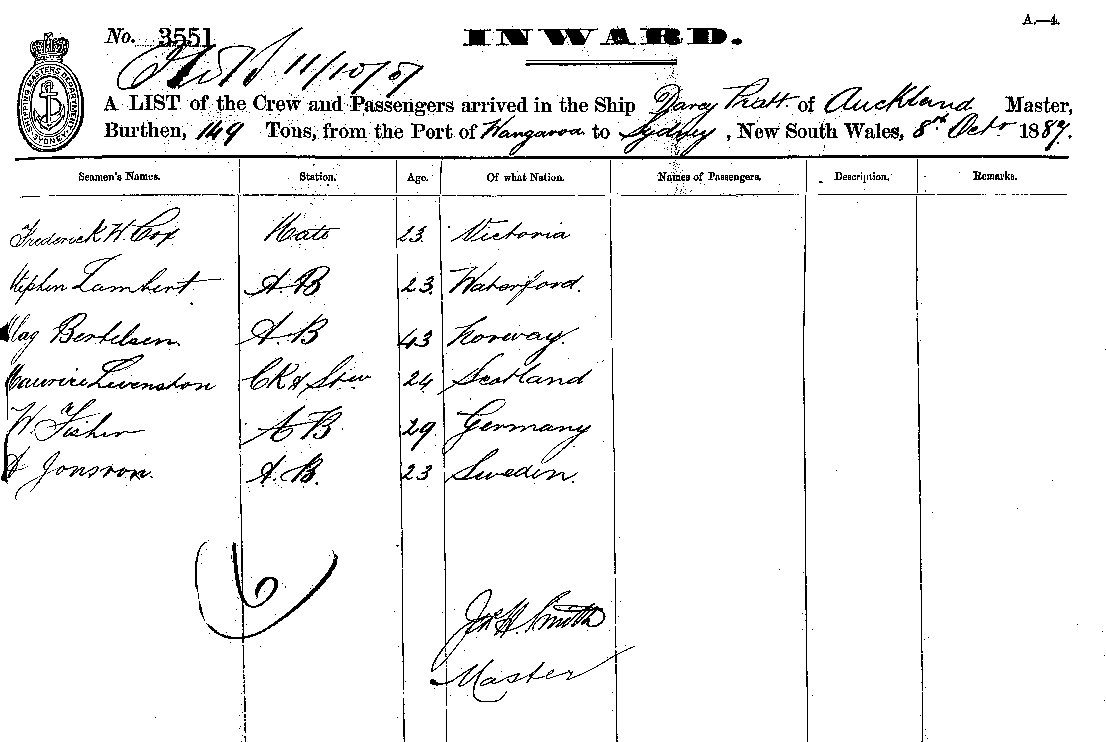 A.—4.
No. 3551
INWARD.
11/10/87
A LIST of the Crew and Passengers arrived in the Ship Darcy Pratt of Auckland Master,
Burthen, 149 Tons, from the Port of Wangaroa to Sydney, New South Wales, 8th Octr 1887.
Seamen's Names. Station. Age. Of what Nation. Names of Passengers. Description. Remarks.
Frederick W. Cox Mate 23 Victoria
Stephen Lambert A B 23 Waterford.
Olag Bertelsen A B 43 Norway
Maurice Levenston CK & Stew 24 Scotland
W Fisher A B 29 Germany
Jonsson. A.B. 23 Sweden.
6
Jno H. Smith
Master